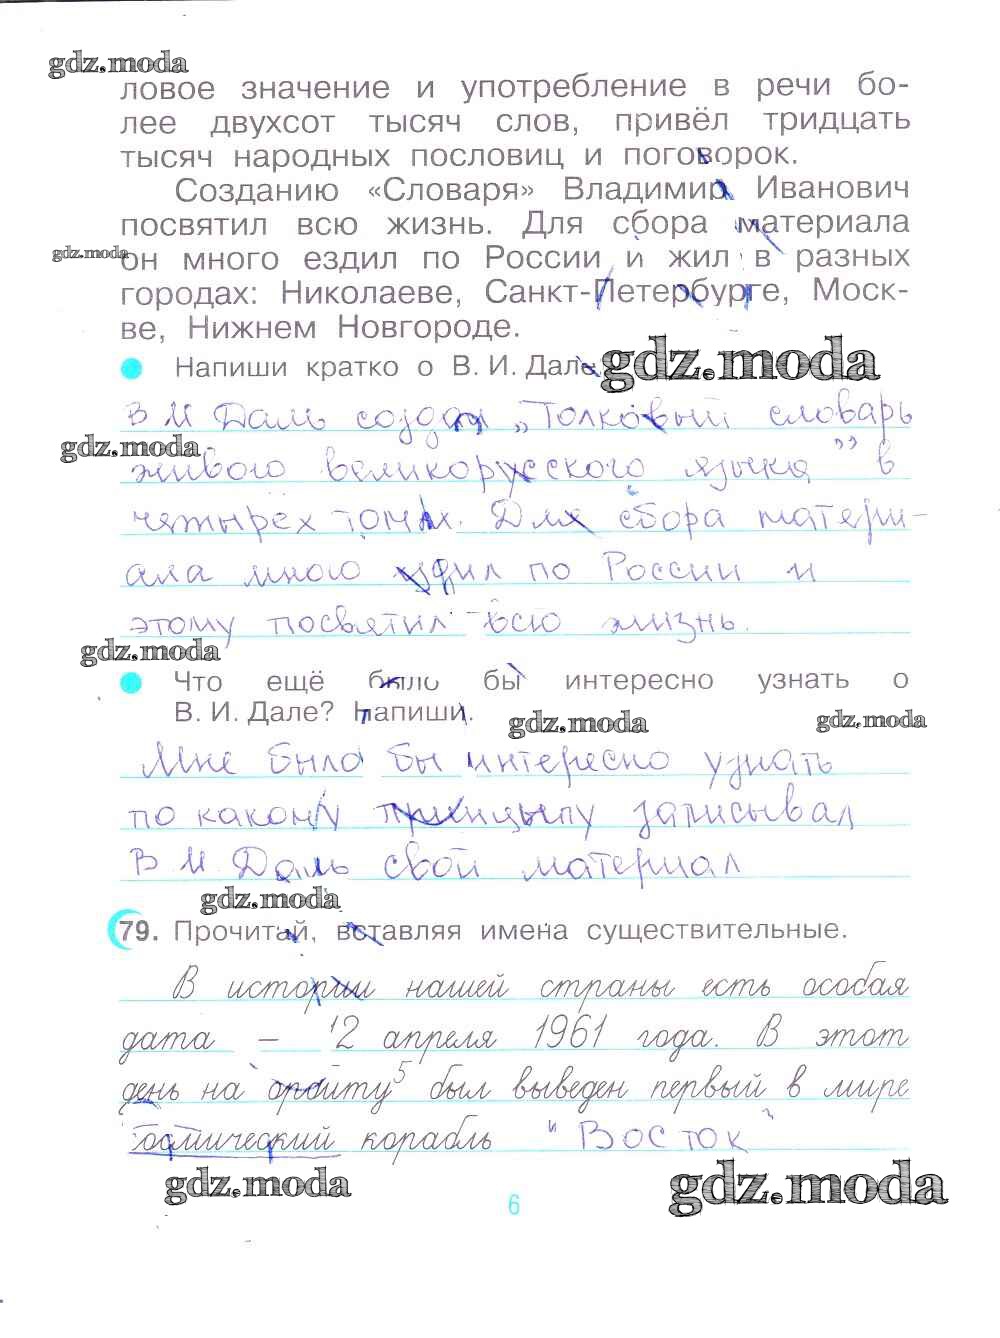 gdz.moda
ловое значение и употребление в речи бо-
лее двухсот тысяч слов, привёл тридцать
тысяч народных пословиц и поговорок.
Созданию «Словаря» Владимир Иванович
посвятил всю жизнь. Для сбора материала
gdz.moda
он много ездил по России и жил в разных
городах: Николаеве, Санкт-Петербурге, Моск-
ве, Нижнем Новгороде.
Напиши кратко о В. И. Дале.
gdz.moda
В И Даль создал „Толковый словарь
gdz.moda
живого великорусского языка” в
четырёх томах. Для сбора матери-
ала много ездил по России и
этому посвятил всю жизнь.
gdz.moda
Что ещё было бы интересно узнать о
В. И. Дале? Напиши.
gdz.moda
gdz.moda
Мне было бы интересно узнать
по какому принцыпу записывал
В И Даль свой материал
gdz.moda
79. Прочитай, вставляя имена существительные.
В истории нашей страны есть особая
дата — 12 апреля 1961 года. В этот
день на орбиту⁵ был выведен первый в мире
космический корабль "Восток"
gdz.moda
gdz.moda
6